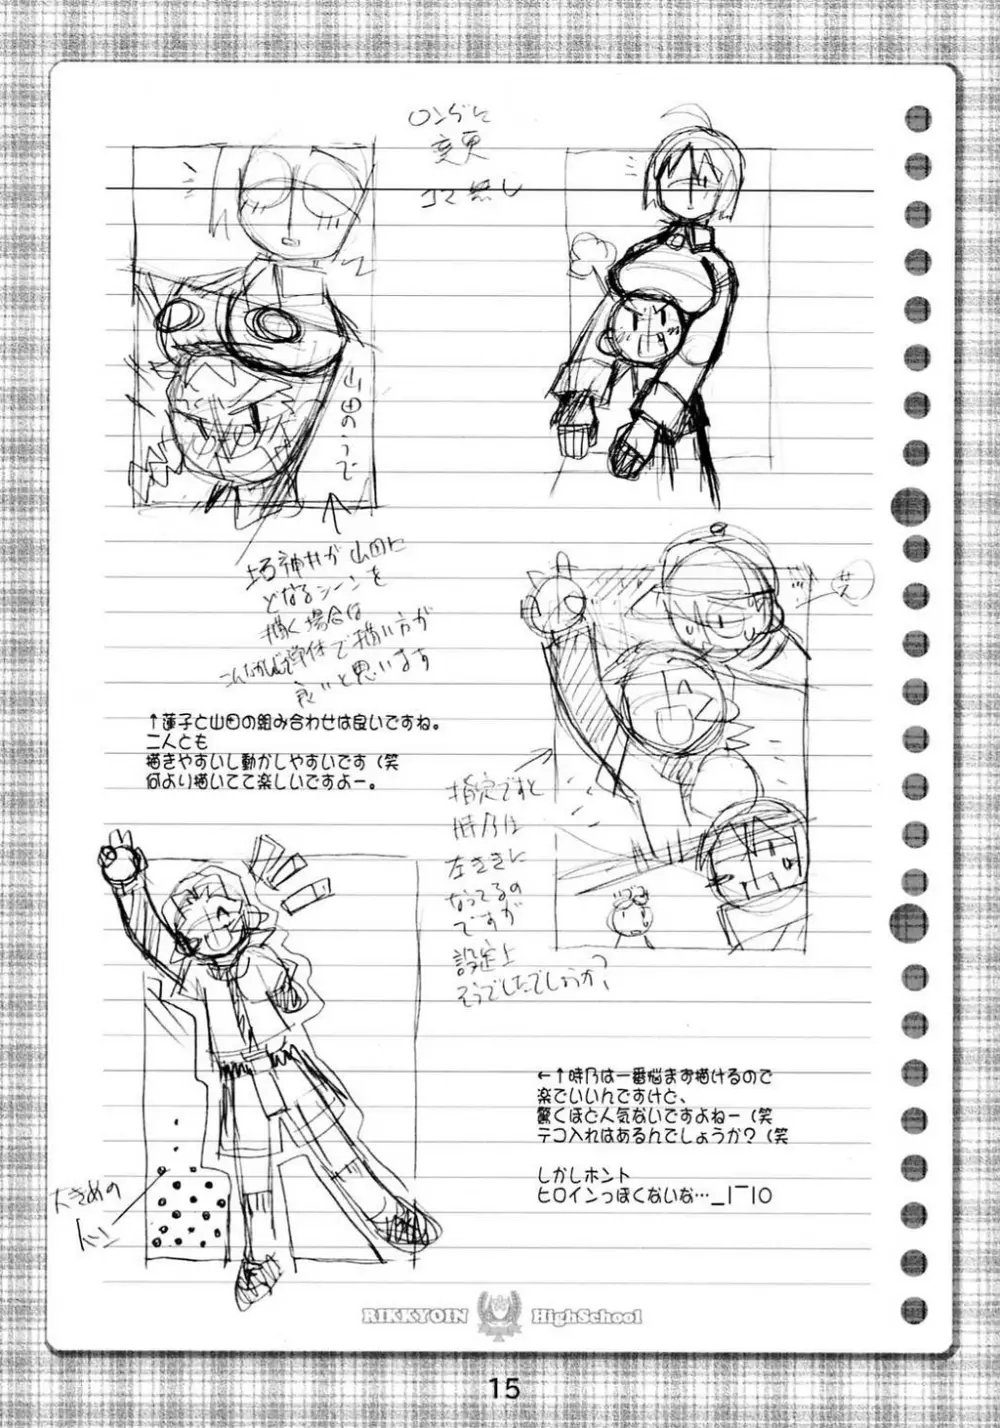 ロングに
変更
コマ無し
山田のうで
巧神村が山田に
どなるシーンを
描く場合は
良いと思います
↑蓮子と山田の組み合わせは良いですね。
二人とも
描きやすいし動かしやすいです（笑
何より描いてて楽しいですよー。
指定ですと
時乃は
左ききに
なってるの
ですが
設定上
そうでしたでしょうか?
大きめの
トーン
←↑時乃は一番悩まず描けるので
楽でいいんですけど、
驚くほど人気ないですよねー（笑
テコ入れはあるんでしょうか？（笑
しかしホント
ヒロインっぽくないな…_|￣|○
RIKKYOIN HighSchool
15